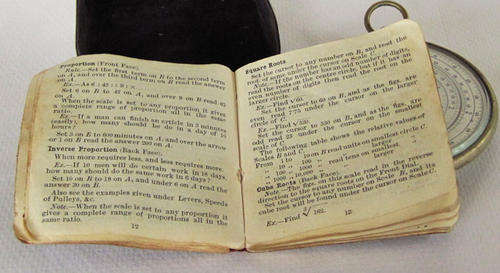 Proportion (Front Face).
Rule.—Set the first term on B to the second term
on A, and over the third term on B read the answer
on A.
Ex.—As 6 : 42 :: 9 : ×
Set 6 on B to 42 on A, and over 9 on B read 63
on A.
When the scale is set to any proportion it gives
a complete range of proportions all in the same
ratio.
Ex.—If a man can finish an article in 5 minutes
(easily), how many should be do in a day of
hours?
Set 5 on B to 600 minutes on A and over the arrow
or 1 on B read the answer on A.
Inverse Proportion (Back Face).
When more requires less, and less requires more.
Ex.—If 10 men will do certain work in 18 days
how many should do the same work in 6 days?
Set 10 on B to 18 on A, and under 6 on A read the
answer 30 on B.
Also see the examples given under Levers, Speeds
of Pulleys, &c.
Note.—When the scale is set to any proportion it
gives a complete range of proportions all in the
same ratio.
12
Square Roots
Set the cursor to any number on B, and read the
root of same under the cursor on Scale
Note.—If the number has an odd number of digits,
read the roots on the circle but if it has an
even number of digits then read the root on the
larger circle.
Ex.—Find √60.
Set the cursor to 60 on B, and as the figs. are
even read 7.75 under the cursor on the larger
circle.
Ex.—Find √530.
Set the cursor to 530 on B, and as the figs. are
odd read 23 under the cursor on the
circle.
The following table shows the relative values of
Scales B and
From 1 to 10 on B read units on smallest circle C.
10 larger
100 1,000 read tens on smallest
larger
Cube Roots (Back Face).
Note.—The figs. on this scale read in the reverse
direction to the square roots on the Front Face.
Set the cursor to the number on B, and its
cube root will be found under the cursor on Scale C.
Ex.—Find ∛162.
12